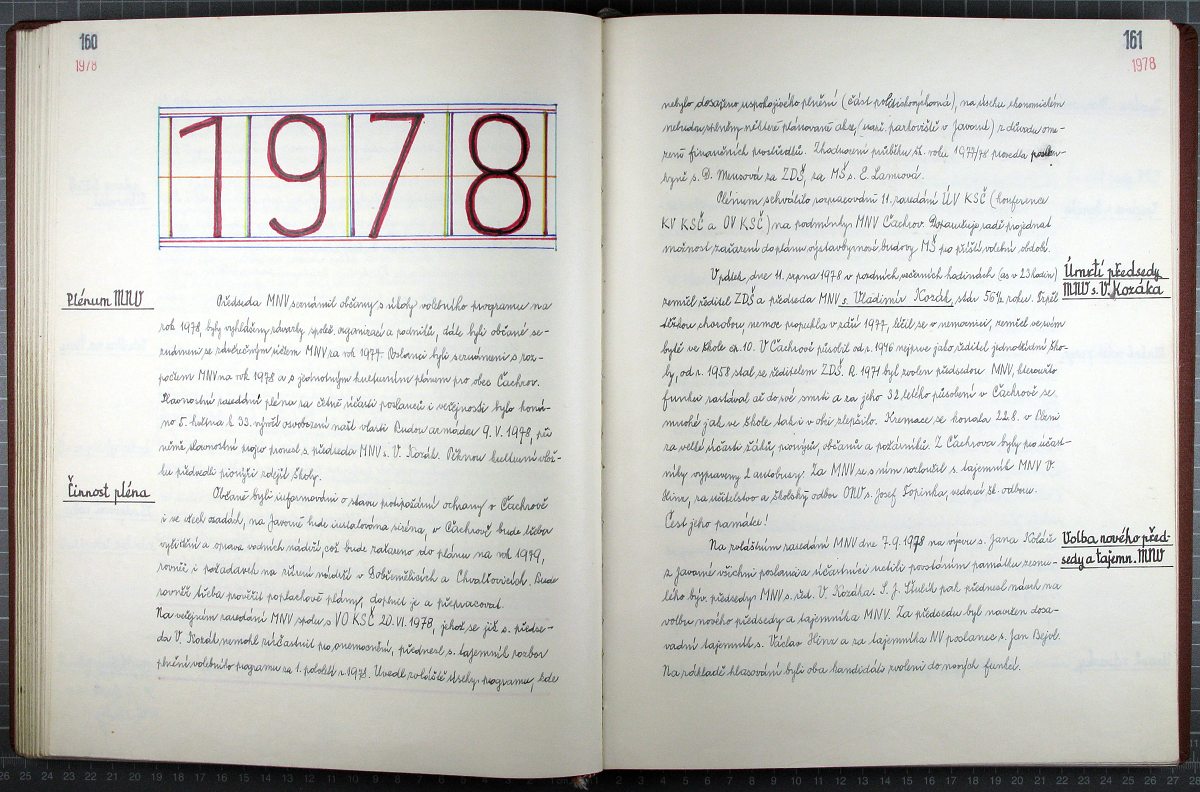 160
1978
1978
Plénum MNV
Předseda MNV seznámil občany s úkoly volebního programu na
rok 1978, byly vyhlášeny závazky společ. organizací a podniků, dále byli občané se-
známeni se závěrečným účtem MNV za rok 1977. Poslanci byli seznámeni s roz-
počtem MNV na rok 1978 a s jednotným kulturním plánem pro obec Čachrov.
Slavnostní zasedání pléna za četné účasti poslanců i veřejnosti bylo koná-
no 5. května k 33. výročí osvobození naší vlasti Rudou armádou 9. V. 1978, při
němž slavnostní projev pronesl s. předseda MNV s. V. Kozák. Pěknou kulturní vlož-
ku předvedli pionýři zdejší školy.
Činnost pléna
Občané byli informováni o stavu protipožární ochrany v Čachrově
i ve všech osadách, na Javorné bude instalována siréna, v Čachrově bude třeba
vyčištění a oprava vodních nádrží, což bude zařazeno do plánu na rok 1979,
rovněž i požadavek na zřízení nádrží v Dobřemělicích a Chvalšovicích. Bude
rovněž třeba prověřit poplachové plány, doplnit je a přepracovat.
Na veřejném zasedání MNV spolu s VO KSČ 20. VI. 1978, jehož se již s. předse-
da V. Kozák nemohl zúčastnit pro onemocnění, přednesl s. tajemník rozbor
plnění volebního programu za 1. pololetí r. 1978. Uvedl zvláště úseky programu, kde
161
1978
nebylo dosaženo uspokojivého plnění (část politickovýchovná), na úseku ekonomickém
nebudou splněny některé plánované akce (např. parkoviště v Javorné) z důvodu ome-
zení finančních prostředků. Zhodnocení průběhu šk. roku 1977/78 provedla poslan-
kyně s. D. Mensová za ZDŠ, za MŠ s. E. Lamrová.
Plénum schválilo rozpracování 11. zasedání ÚV KSČ (konference
KV KSČ a OV KSČ) na podmínky MNV Čachrov. Doporučuje radě projednat
možnost zařazení do plánu výstavby nové budovy MŠ pro příští volební období.
Úmrtí předsedy
MNV s. V. Kozáka
V pátek dne 11. srpna 1978 v pozdních večerních hodinách (as v 23 hodin)
zemřel ředitel ZDŠ a předseda MNV s. Vladimír Kozák, stár 56½ roku. Trpěl
těžkou chorobou, nemoc propukla v září 1977, léčil se v nemocnici, zemřel ve svém
bytě ve škole čp. 10. V Čachrově působil od r. 1946 nejprve jako ředitel jednotřídní ško-
ly, od r. 1958 stal se ředitelem ZDŠ. R. 1971 byl zvolen předsedou MNV, kteroužto
funkci zastával až do své smrti a za jeho 32 letého působení v Čachrově se
mnohé jak ve škole tak i v obci zlepšilo. Kremace se konala 22.8. v Plzni
za velké účasti žáků, pionýrů, občanů a požárníků. Z Čachrova byly pro účast-
níky vypraveny 2 autobusy. Za MNV se s ním rozloučil s. tajemník MNV V.
Hinz, za učitelstvo a školský odbor ONV s. Josef Topinka, vedoucí šk. odboru.
Čest jeho památce!
Volba nového před-
sedy a tajemn. MNV
Na zvláštním zasedání MNV dne 7. 9. 1978 na výzvu s. Jana Koláře
z Javorné všichni poslanci a účastníci uctili povstáním památku zemře-
lého býv. předsedy MNV s. před. V. Kozáka. S. J. Štulík pak přednesl návrh na
volbu nového předsedy a tajemníka MNV. Za předsedu byl navržen dosa-
vadní tajemník s. Václav Hinz a za tajemníka NV poslanec s. Jan Bejol.
Na základě hlasování byli oba kandidáti zvoleni do nových funkcí.